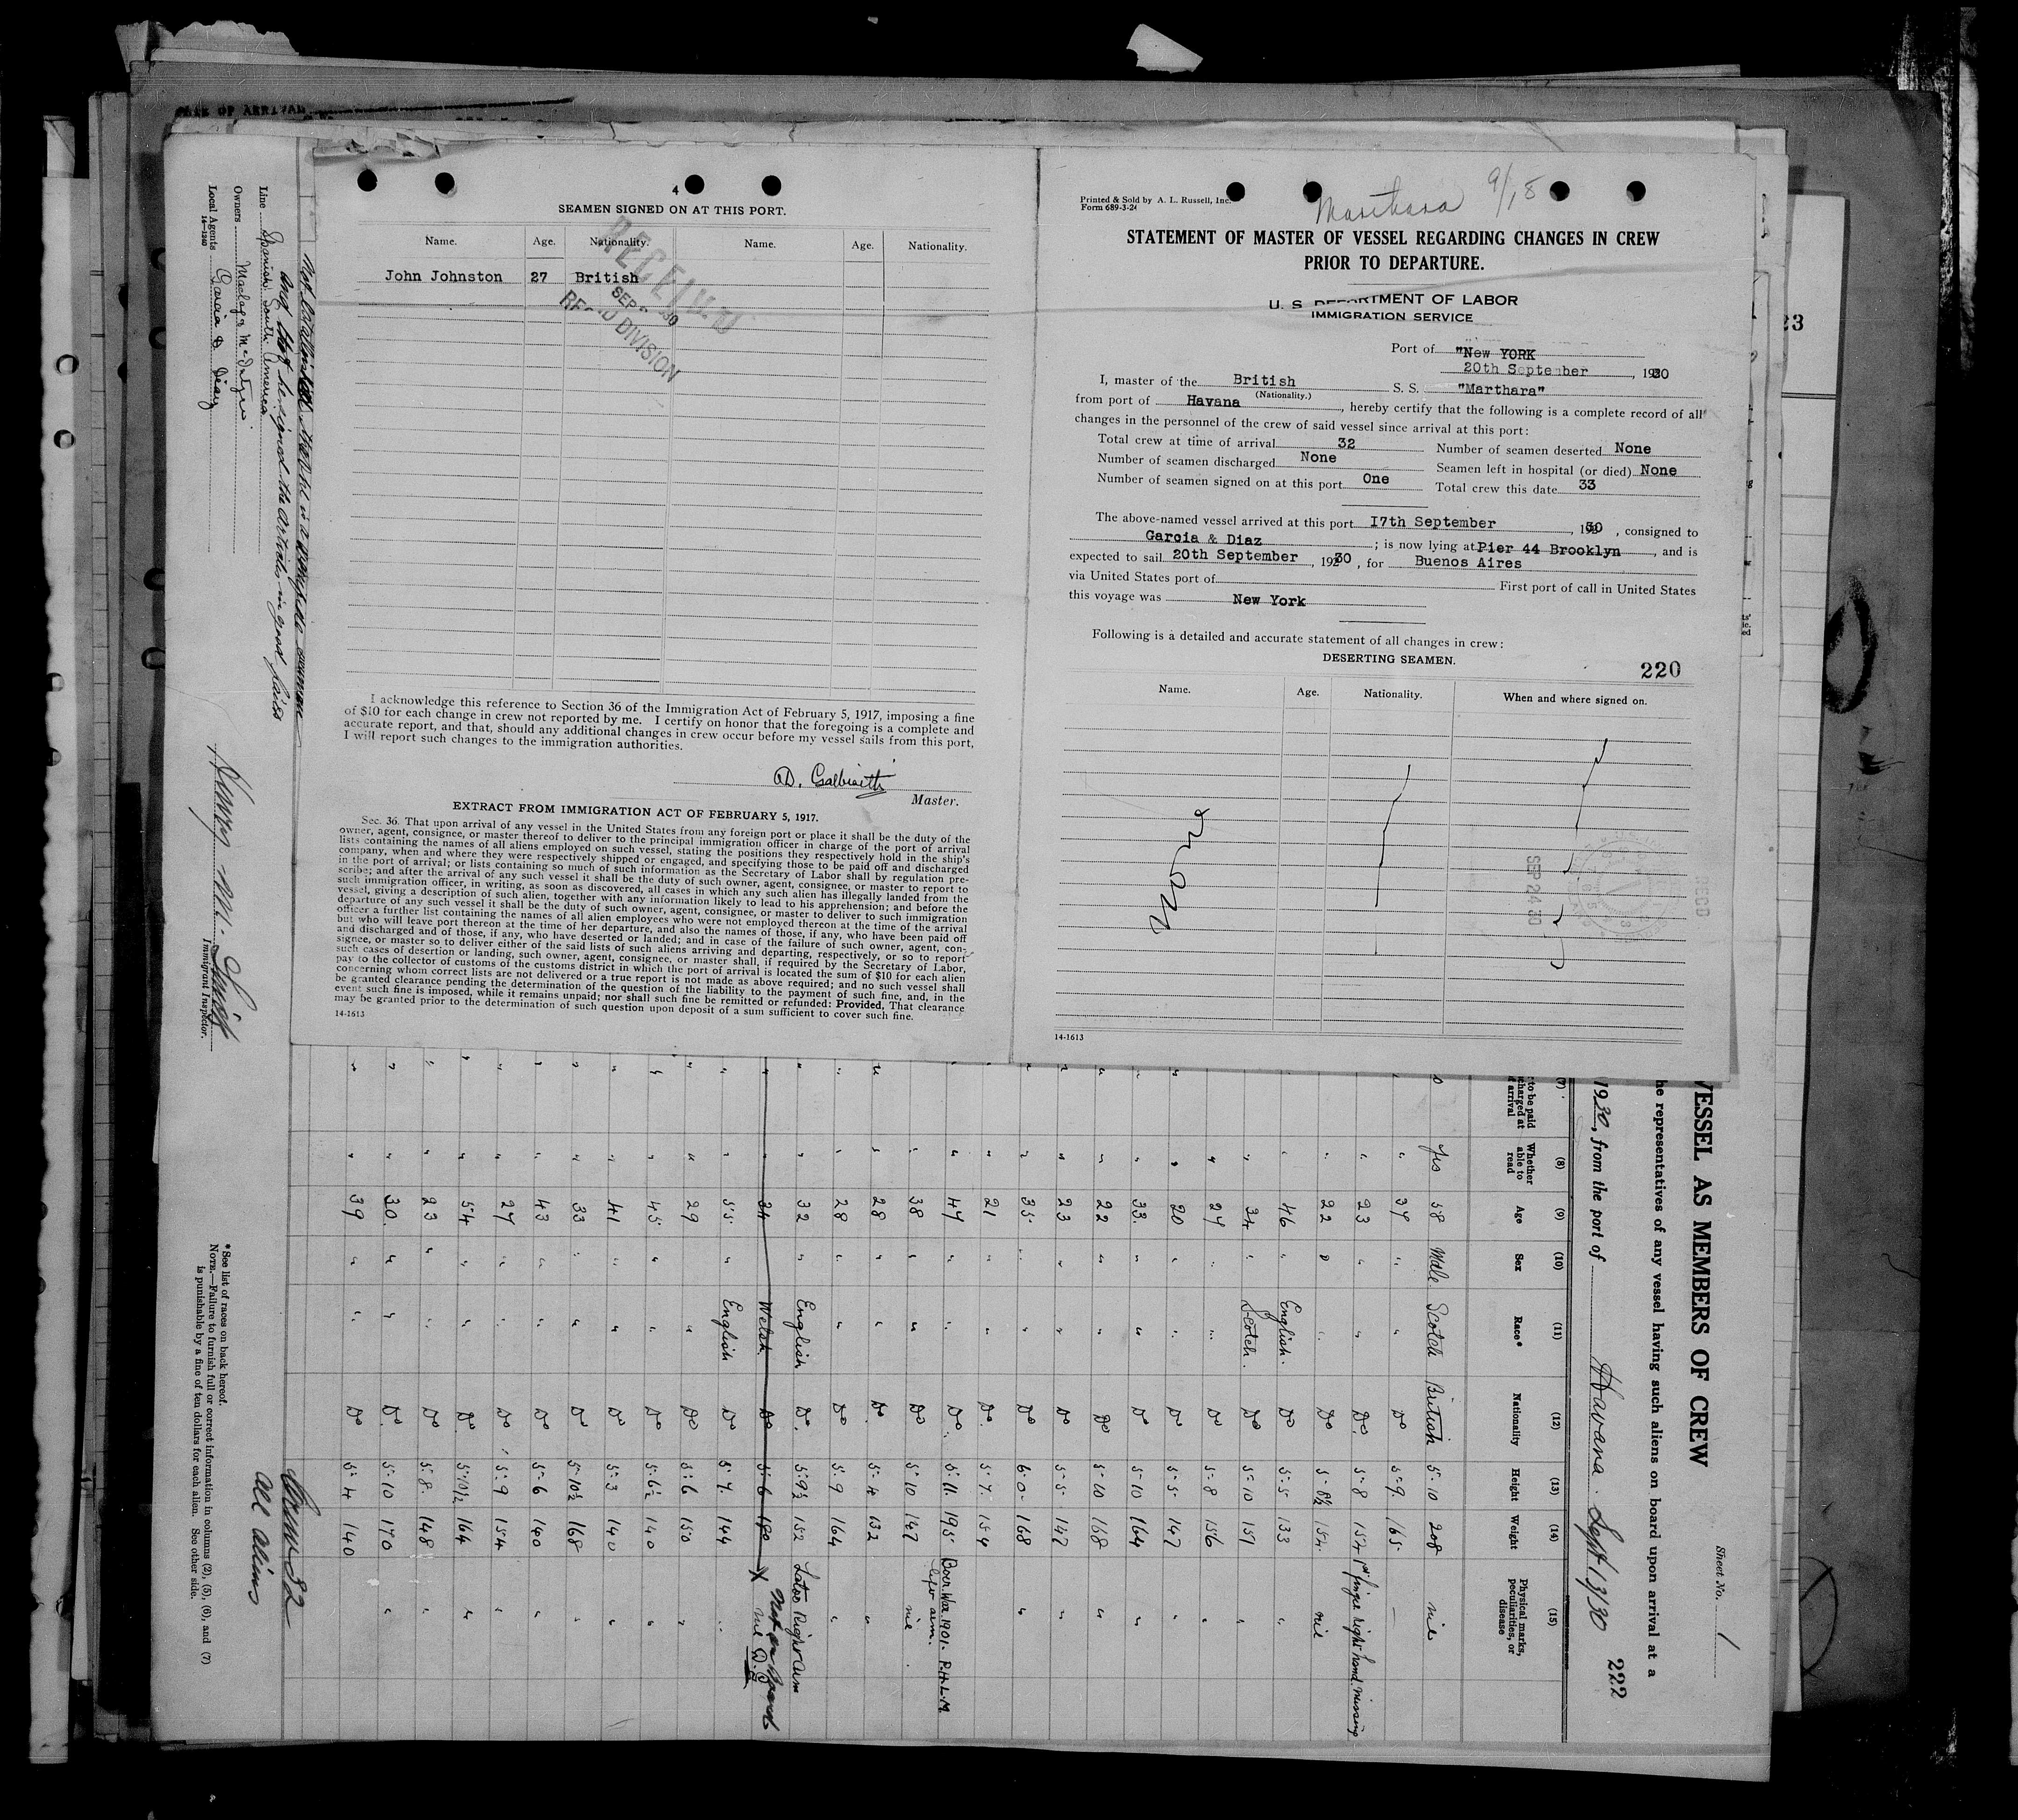 4
SEAMEN SIGNED ON AT THIS PORT.
Name. Age. Nationality. Name. Age. Nationality.
John Johnston 27 British
RECEIVED
SEP 30
DIVISION
I acknowledge this reference to Section 36 of the Immigration Act of February 5, 1917, imposing a fine
of $10 for each change in crew not reported by me. I certify on honor that the foregoing is a complete and
accurate report, and that, should any additional changes in crew occur before my vessel sails from this port,
I will report such changes to the immigration authorities.
D. Galbraith
Master.
EXTRACT FROM IMMIGRATION ACT OF FEBRUARY 5, 1917.
Sec. 36. That upon arrival of any vessel in the United States from any foreign port or place it shall be the duty of the
owner, agent, consignee, or master thereof to deliver to the principal immigration officer in charge of the port of arrival
lists containing the names of all aliens employed on such vessel, stating the positions they respectively hold in the ship's
company, when and where they were respectively shipped or engaged, and specifying those to be paid off and discharged
in the port of arrival; or lists containing so much of such information as the Secretary of Labor shall by regulation pre-
scribe; and after the arrival of any such vessel it shall be the duty of such owner, agent, consignee, or master to report to
such immigration officer, in writing, as soon as discovered, all cases in which any such alien has illegally landed from the
vessel, giving a description of such alien, together with any information likely to lead to his apprehension; and before the
departure of any such vessel it shall be the duty of such owner, agent, consignee, or master to deliver to such immigration
officer a further list containing the names of all alien employees who were not employed thereon at the time of the arrival
but who will leave port thereon at the time of her departure, and also the names of those, if any, who have been paid off
and discharged and of those, if any, who have deserted or landed; and in case of the failure of such owner, agent, con-
signee, or master so to deliver either of the said lists of such aliens arriving and departing, respectively, or so to report
such cases of desertion or landing, such owner, agent, consignee, or master shall, if required by the Secretary of Labor,
pay to the collector of customs of the customs district in which the port of arrival is located the sum of $10 for each alien
concerning whom correct lists are not delivered or a true report is not made as above required; and no such vessel shall
be granted clearance pending the determination of the question of the liability to the payment of such fine, and, in the
event such fine is imposed, while it remains unpaid; nor shall such fine be remitted or refunded: Provided, That clearance
may be granted prior to the determination of such question upon deposit of a sum sufficient to cover such fine.
14-1613
Printed & Sold by A. L. Russell, Inc.
Form 689-3-24
Marthara 9/18
STATEMENT OF MASTER OF VESSEL REGARDING CHANGES IN CREW
PRIOR TO DEPARTURE.
U. S. DEPARTMENT OF LABOR
IMMIGRATION SERVICE
Port of "New YORK
20th September, 1930
I, master of the British S. S. "Marthara"
(Nationality.)
from port of Havana, hereby certify that the following is a complete record of all
changes in the personnel of the crew of said vessel since arrival at this port:
Total crew at time of arrival 32 Number of seamen deserted None
Number of seamen discharged None Seamen left in hospital (or died) None
Number of seamen signed on at this port One Total crew this date 33
The above-named vessel arrived at this port 17th September, 1930, consigned to
Garcia & Diaz; is now lying at Pier 44 Brooklyn, and is
expected to sail 20th September, 1930, for Buenos Aires
via United States port of First port of call in United States
this voyage was New York
Following is a detailed and accurate statement of all changes in crew:
DESERTING SEAMEN.
220
Name. Age. Nationality. When and where signed on.
None
SEP 24 30
14-1613
Sheet No. 1
VESSEL AS MEMBERS OF CREW
he representatives of any vessel having such aliens on board upon arrival at a
1930, from the port of Havana. Sept 13/30 222
(8) (9) (10) (11) (12) (13) (14) (15)
Whether able to read Age Sex Race* Nationality Height Weight Physical marks, peculiarities, or disease
yes 58 Male Scotch British 5-10 208 nil
" 39 " " Do 5-9 165 —
" 23 " " Do 5-8 154 1st finger right hand missing
" 22 " " Do 5-8½ 154 nil
" 46 " English. Do 5-5 133 "
" 34 " Scotch. Do 5-10 151 "
" 27 " " Do 5-8 156 "
" 20 " " Do 5-5 147 "
" 33 " " Do 5-10 164 "
" 22 " " Do 5-10 168 "
" 23 " " Do 5-5 147 "
" 35 " " Do 6-0 168 "
" 21 " " Do 5-7 154
" 47 " " Do 5-11 195 Boer War 1901
" 38 " " Do 5-10 147 nil
" 28 " " Do 5-4 132 "
" 28 " " Do 5-9 164 "
" 32 " English Do 5-9½ 152 Right arm
" 34 " Welsh Do 5-6 180 X Not on Board nil
" 55 " English Do 5-7 144 "
" 29 " " Do 5-6 150 "
" 45 " " Do 5-6½ 140 "
" 41 " " Do 5-3 140 "
" 33 " " Do 5-10½ 168 "
" 43 " " Do 5-6 140 "
" 27 " " Do 5-9 154 "
" 54 " " Do 5-10½ 164 "
" 23 " " Do 5-8 148 "
" 30 " " Do 5-10 170 "
" 39 " " Do 5-4 140
Crew 32
All aliens
and that he signed the articles in good faith
Line Spanish South America
Owners
Local Agents Garcia & Diaz
14-1240
Immigrant Inspector.
* See list of races on back hereof.
NOTE.—Failure to furnish full or correct information in columns (2), (5), (6), and (7)
is punishable by a fine of ten dollars for each alien. See other side.
23